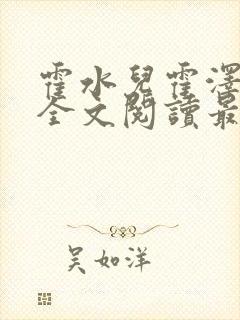 霍水兒霍澤
全文閱讀最
吴如洋